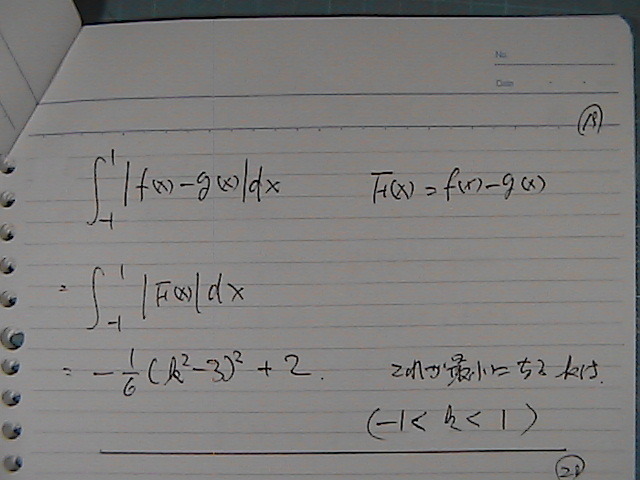 No.
Date
⑲
∫₋₁¹ |f(x)-g(x)|dx F(x)=f(x)-g(x)
= ∫₋₁¹ |F(x)|dx
= -1/6 (k²-3)²+2. これが最小になるkは.
(-1<k<1)
⑳